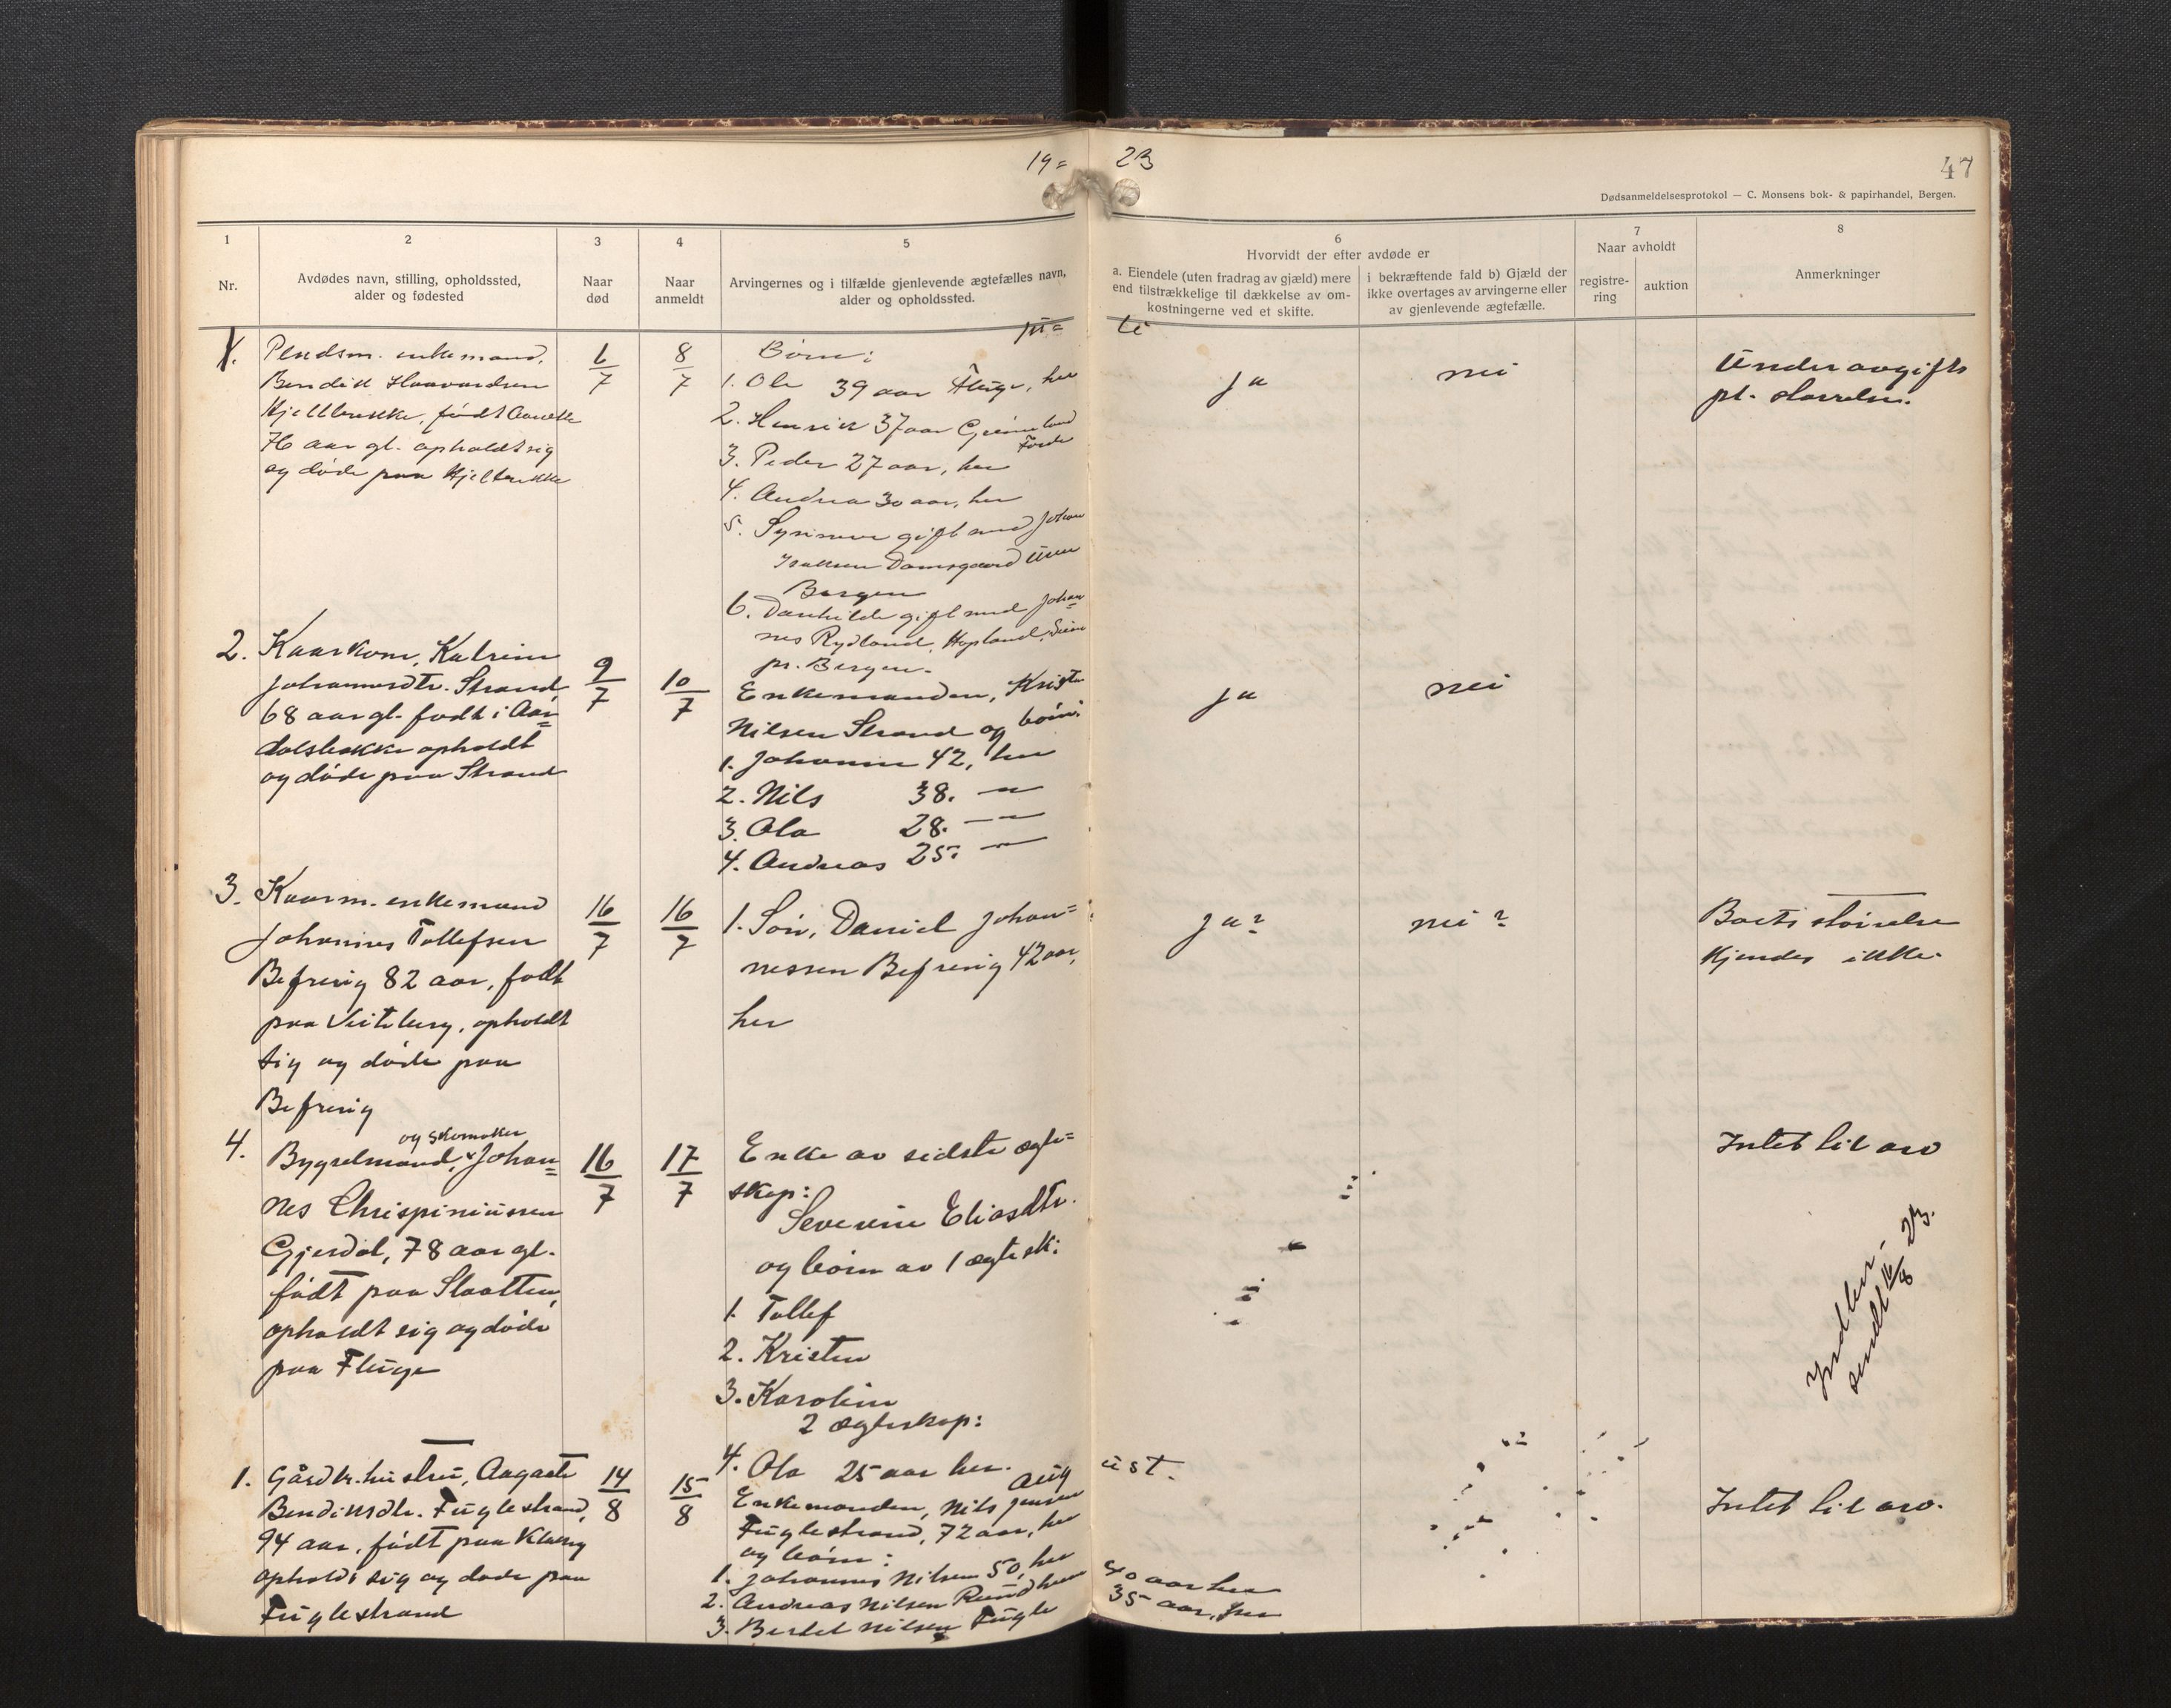 19=
23
47
Dødsanmeldelsesprotokol — C. Monsens bok- & papirhandel, Bergen.
1
Nr.
2
Avdødes navn, stilling, opholdssted,
alder og fødested
3
Naar
død
4
Naar
anmeldt
5
Arvingernes og i tilfælde gjenlevende ægtefælles navn,
alder og opholdssted.
6
Hvorvidt der efter avdøde er
a. Eiendele (uten fradrag av gjæld) mere
end tilstrækkelige til dækkelse av om-
kostningerne ved et skifte.
i bekræftende fald b) Gjæld der
ikke overtages av arvingerne eller
av gjenlevende ægtefælle.
7
Naar avholdt
registre-
ring
auktion
8
Anmerkninger
1.
enkemand,
Bendik Haavardsen
født
76 aar gl. opholdt sig
og døde paa
6/7
8/7
Børn:
1. Ole 39 aar Fluge, her
2. Henrik 37 aar
Førde
3. Peder 27 aar, her
4. Andrea 30 aar, her
5. Synneve gift med Johan
Isaksen Damsgaard
Bergen
6. gift med Johan=
nes Rydland, Hopland,
pr. Bergen.
ja
nei
Under avgifts
pl. størrelse.
2. Kaarkone, Katrine
Johannesdtr. Strand,
68 aar gl. født i Aar=
dalsbakke opholdt
og døde paa Strand
9/7
10/7
Enkemanden, Kristen
Nilsen Strand og børn:
1. Johanne 42, her
2. Nils 38. — " —
3. Ola 28. — " —
4. Andreas 25. — " —
ja
nei
3. Kaarm. enkemand
Johannes Tollefsen
Befring 82 aar, født
paa Veiteberg, opholdt
sig og døde paa
Befring
16/7
16/7
1. Søn, Daniel Johan=
nessen Befring 42 aar,
her
ja?
nei?
Boets størrelse
kjendes ikke.
4.
og skomaker
Bygselmand, Johan=
nes Chrispiniussen
Gjerdal, 78 aar gl.
født paa Slaatten,
opholdt sig og døde
paa Fluge
16/7
17/7
Enke av sidste ægte=
skap:
Severine Eliasdtr.
og børn av 1 ægtesk:
1. Tollef
2. Kristen
3. Karoline
2 ægteskap:
4. Ola 25 aar her.
Intet til arv
Indber.
sendt 16/8 23.
Aug
ust.
1. Gårdbr. hustru, Aagaate
Bendiksdtr. Fuglestrand,
94 aar, født paa
opholdt sig og døde paa
Fuglestrand
14/8
15/8
Enkemanden, Nils Jensen
Fuglestrand, 72 aar, her
og børn:
1. Johannes Nilsen 50, her
2. Andreas Nilsen
40 aar her
3. Bertel Nilsen Fugle
35 aar, her
Intet til arv.